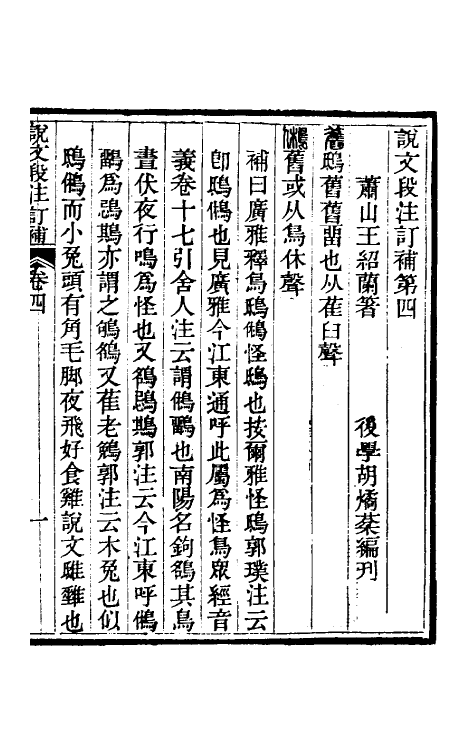 說文段注訂補第四
蕭山王紹蘭著 後學胡燏棻編刊
舊鴟舊舊畱也从萑臼聲
鵂舊或从鳥休聲
補曰廣雅釋鳥鴟鵂怪鴟也按爾雅怪鴟郭璞注云
卽鴟鵂也見廣雅今江東通呼此屬爲怪鳥眾經音
義卷十七引舍人注云謂鵂鶹也南陽名鉤鵅其鳥
晝伏夜行鳴爲怪也又鵅鶀郭注云今江東呼鵂
鶹爲鶀亦謂之鴝鵅又萑老鵵郭注云木兔也似
鴟鵂而小兔頭有角毛脚夜飛好食雞說文雎䧿也
說文段注訂補 卷四 一